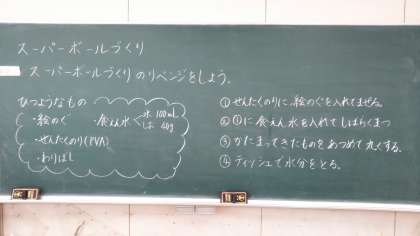 スーパーボールづくり
スーパーボールづくりのリベンジをしよう。
ひつようなもの
・絵のぐ ・食えん水<水 100mL しお 40g
・せんたくのり(PVA)
・わりばし
①せんたくのりに、絵のぐを入れてまぜる。
②①に食えん水を入れてしばらくまつ
③かたまってきたものをあつめて丸くする。
④ティッシュで水分をとる。